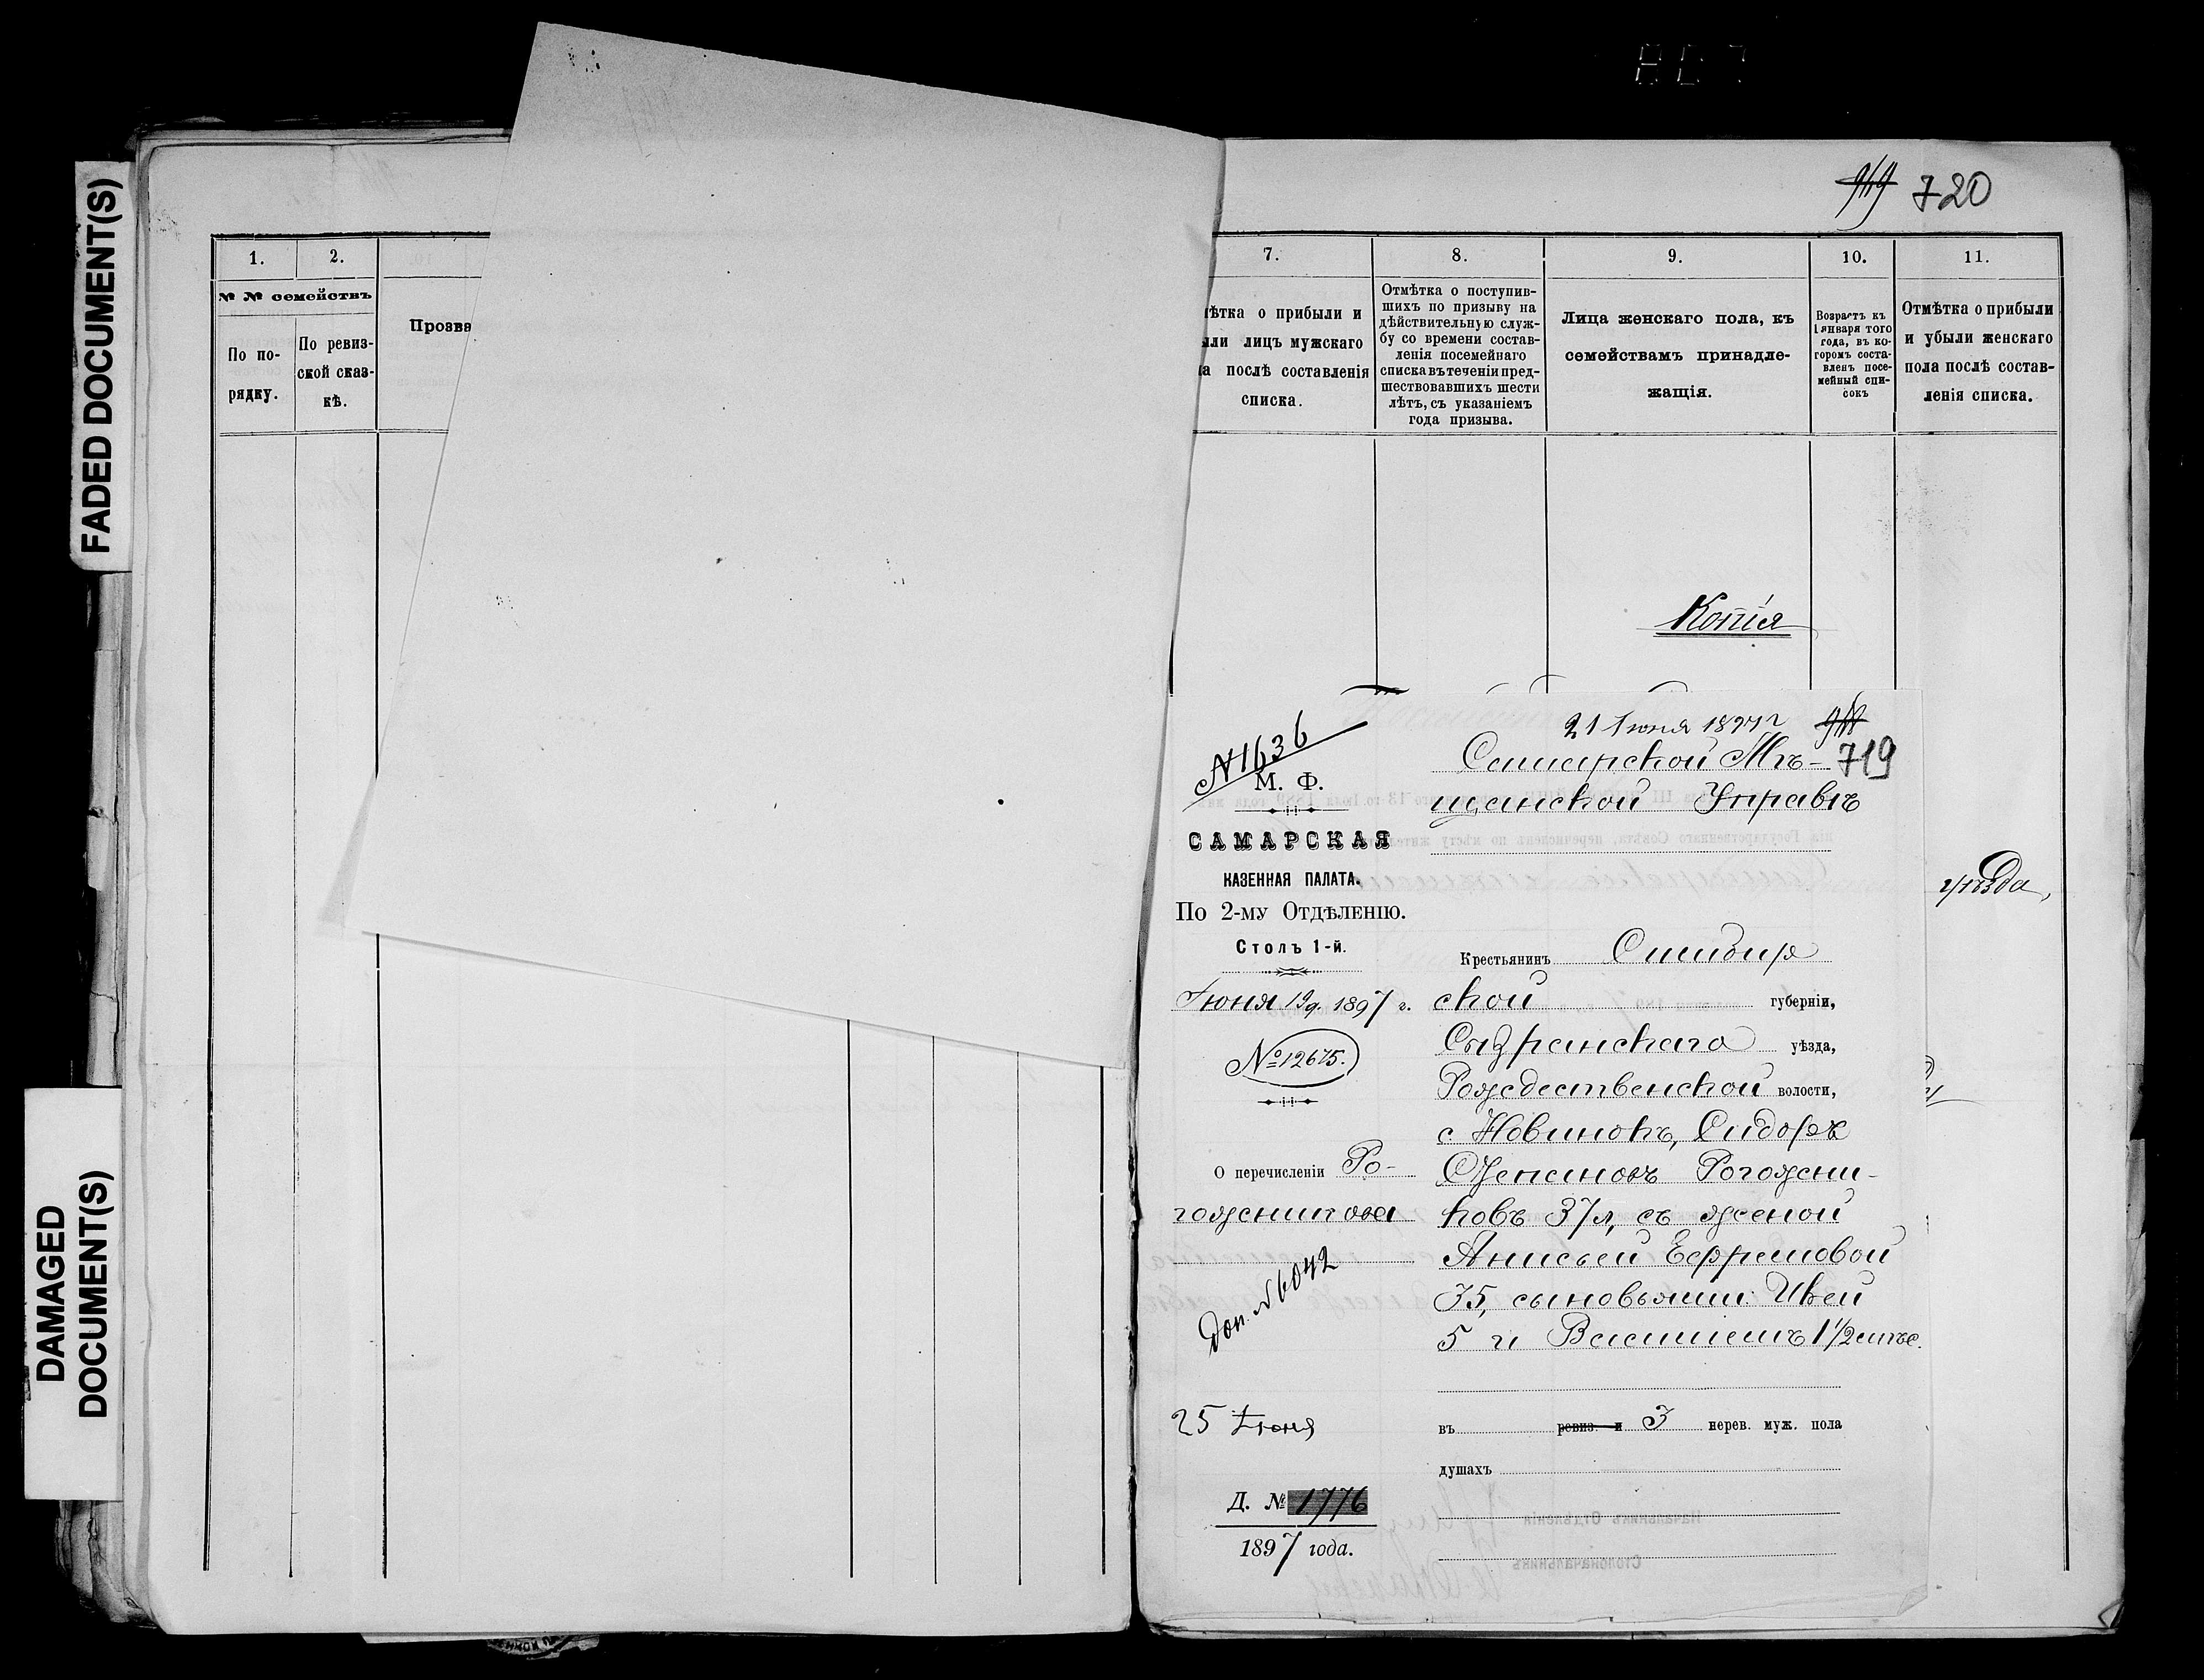 FADED DOCUMENT(S)
DAMAGED
DOCUMENT(S)
720
1.
2.
№ № семействъ
По по-
рядку.
По ревиз-
ской сказ-
кѣ.
Прозва
7.
ѣтка о прибыли и
ыли лицъ мужскаго
а послѣ составленія
списка.
8.
Отмѣтка о поступив-
шихъ по призыву на
дѣйствительную служ-
бу со времени состав-
ленія посемейнаго
списка въ теченіи пред-
шествовавшихъ шести
лѣтъ, съ указаніемъ
года призыва.
9.
Лица женскаго пола, къ
семействамъ принадле-
жащія.
10.
Возрастъ къ
1 января того
года, въ ко-
торомъ соста-
вленъ посе-
мейный спи-
сокъ
11.
Отмѣтка о прибыли
и убыли женскаго
пола послѣ состав-
ленія списка.
Копія
уѣзда,
№1636
М. Ф.
САМАРСКАЯ
КАЗЕННАЯ ПАЛАТА.
По 2-му Отдѣленію.
Столъ 1-й.
Іюня 19д. 1897 г.
№12675.
О перечисленіи Ро-
гожникова
Доп. №6042
25 Іюня
Д. № 1776
1897 года.
21 Іюня 1897 г
719
Самарской Мѣ-
щанской Управѣ
Крестьянинъ Симбир
ской губерніи,
Сызранскаго уѣзда,
Рождественской волости,
с Новинокъ, Сидоръ
Степановъ Рогожни-
ковъ 37 л, съ женой
Анисьей Ефремовой
35, сыновьями: Ивой
5 и Василіемъ 1 1/2
въ ревиз. и 3 нерев. муж. пола
душахъ